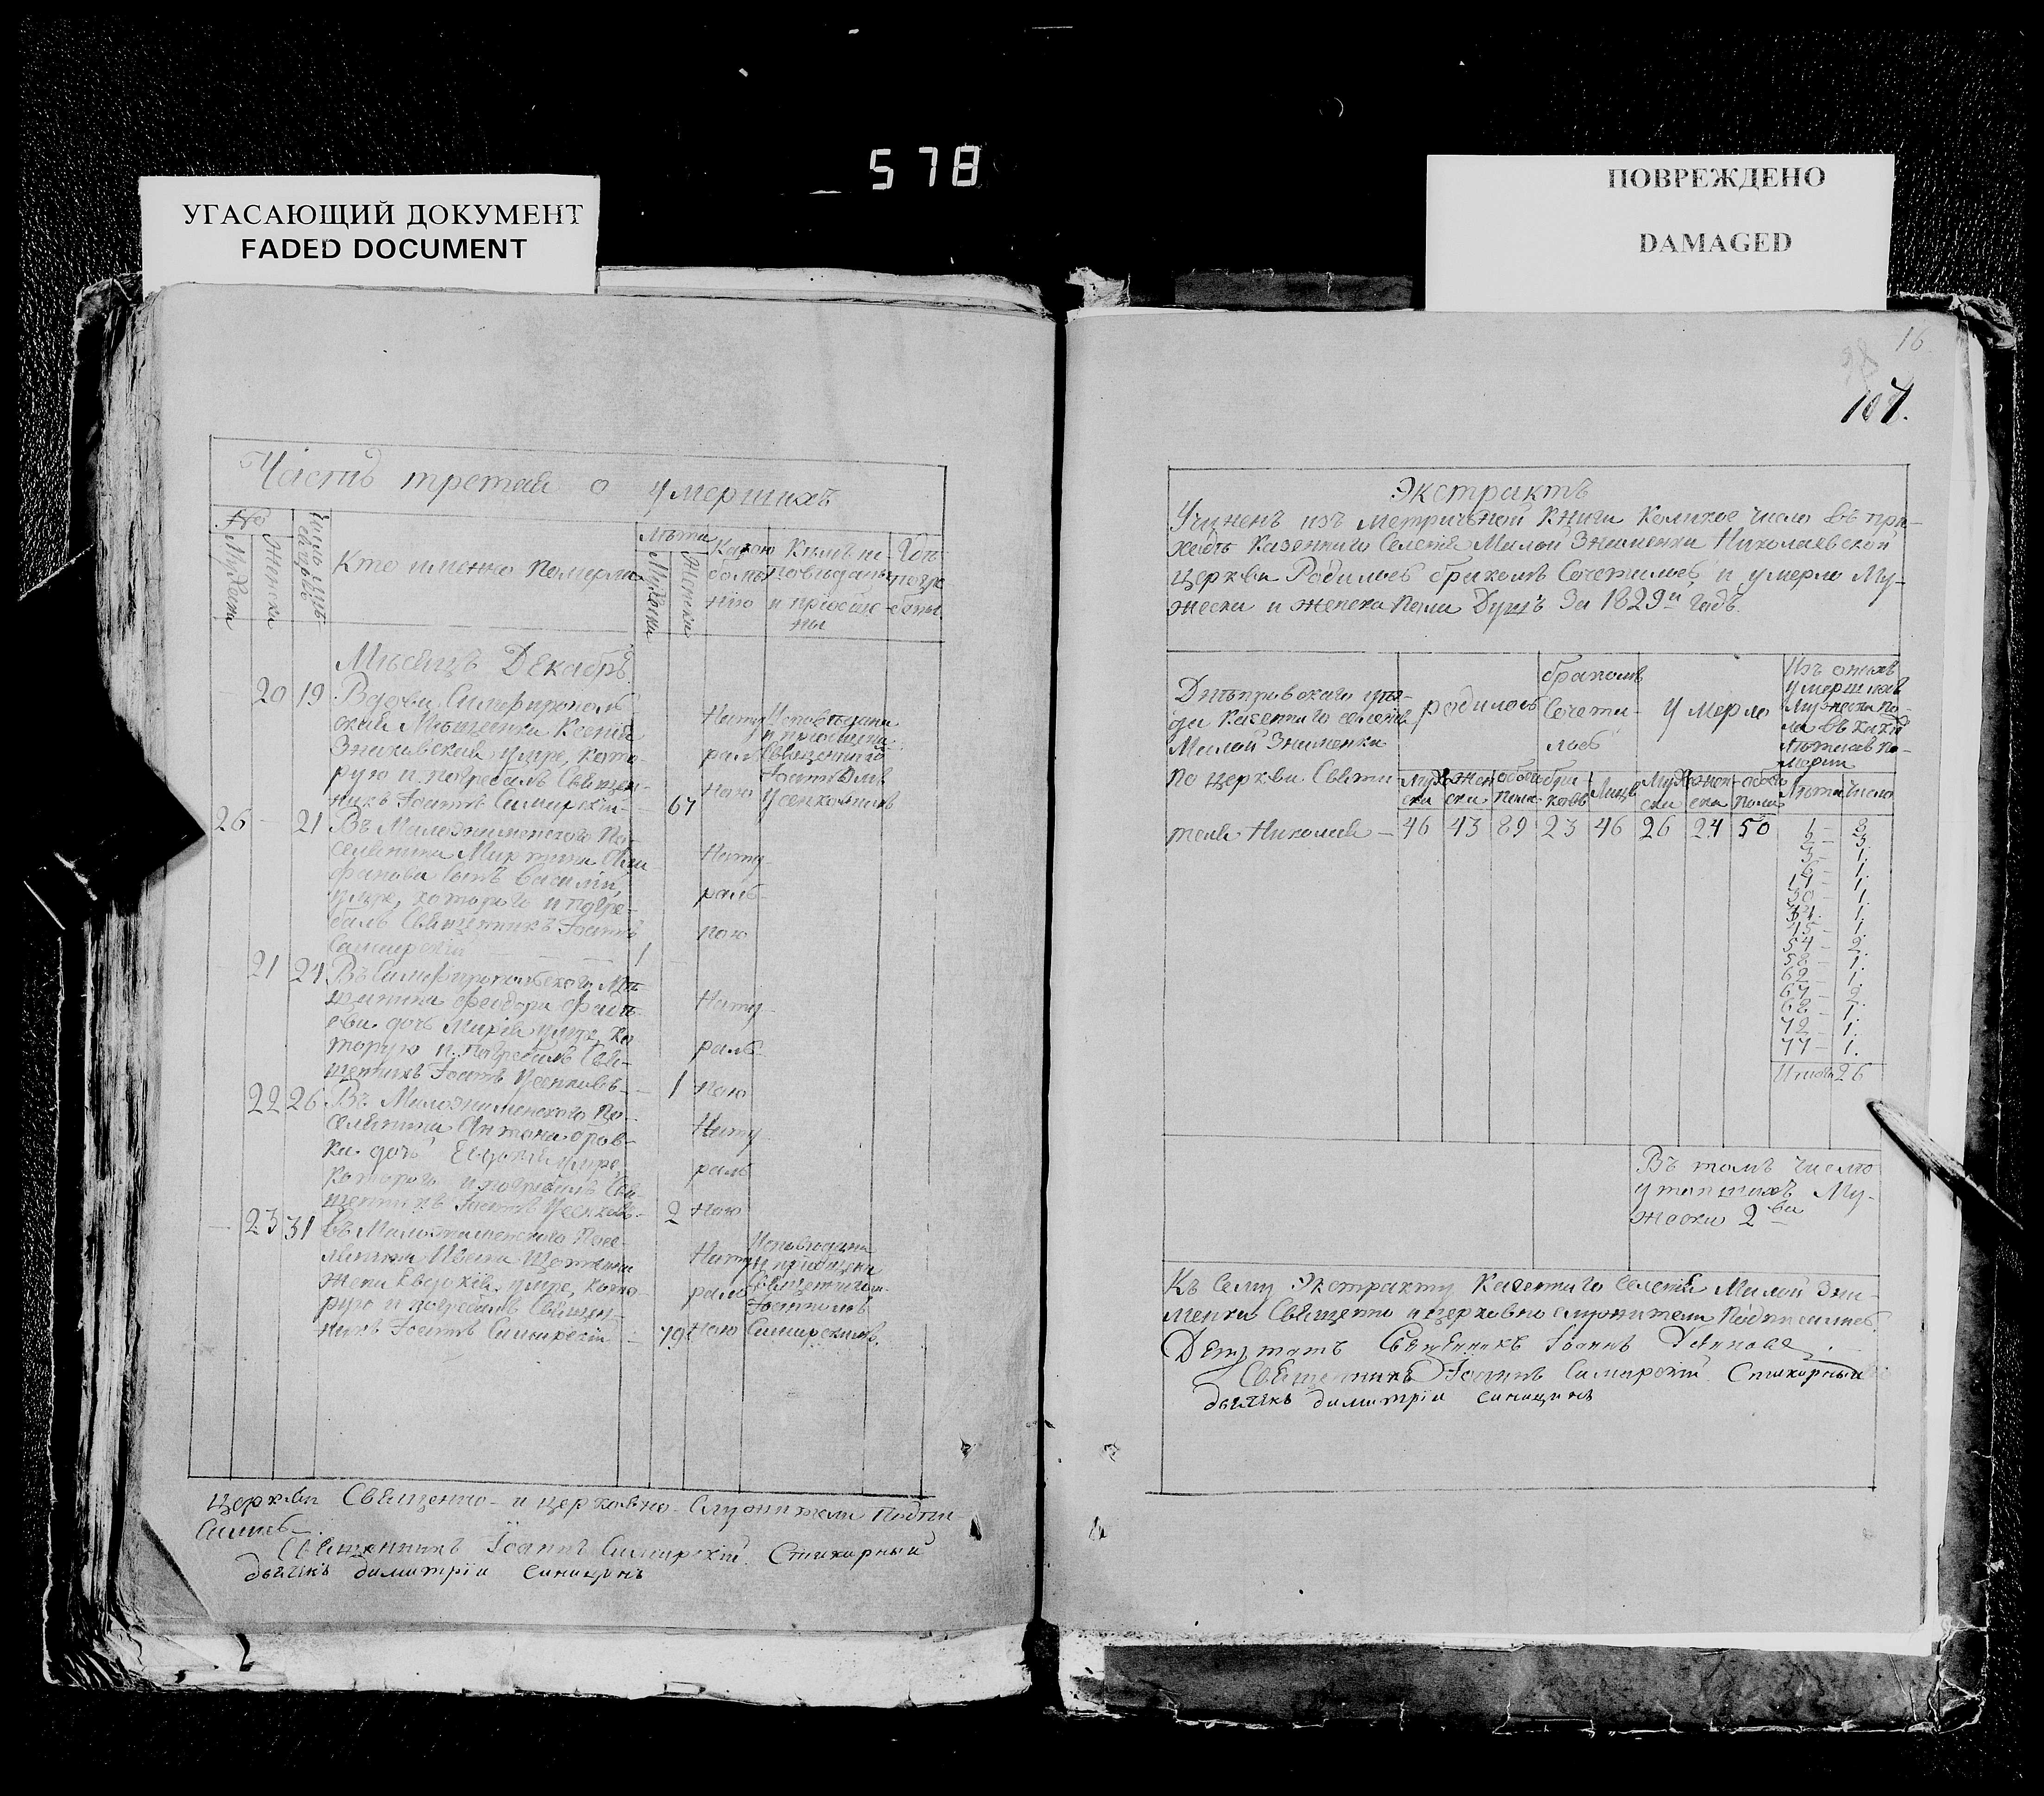 578
УГАСАЮЩИЙ ДОКУМЕНТ
FADED DOCUMENT
ПОВРЕЖДЕНО
DAMAGED
Часть третая о умершихъ
№
Мужеска
Женска
Число
Кто именно померли
Лѣта
Мужеска
Женска
Какою
болѣз
нію
Кѣмъ ис
повѣданы
и пріобще
ны
Гдѣ
погре
бены
Мѣсяцъ Декабрь
20 19 Вдова Симферополь
ская Мѣщанка Ксенія
умре, кото
рую и погребалъ Священ
никъ Іоаннъ Самарскій 67
Нату
раль
ною
Исповѣдана
и пріобщена
Священник
Іоанномъ
Усенковымъ
26 21 Въ Малознаменского По
селянина Мартина
сынъ Василій
умре, которого и погре
балъ Священникъ Іоаннъ
Самарскій 1
Нату
раль
ною
21 24 Въ Симферопольского Мѣ
щанина Феодора
дочь Марія умре, ко
торую и погребалъ Свя
щенникъ Іоаннъ Усенковъ 1
Нату
раль
ною
22 26 Въ Малознаменского По
селянина Антона
дочь умре,
которого и погребалъ Свя
щенникъ Іоаннъ Усенковъ 2
Нату
раль
ною
23 31 Въ Малознаменского Посе
лянина Ивана
жена Евдокія умре, кото
рую и погребалъ Священ
никъ Іоаннъ Самарскій 79
Нату
раль
ною
Исповѣдана
и пріобщена
Священником
Іоанномъ
Самарскимъ
Церкви Священно- и церковно-служители подпи
сались
Священникъ Іоаннъ Самарскій Стихарный
дьячекъ димитрій синицинъ
16
107.
Экстрактъ
Учиненъ изъ метричной книги коликое число въ при-
ходѣ казенного Селенія Малой Знаменки Николаевской
церкви Родилось бракомъ Сочеталось и умерло Му-
жеска и женска пола Душъ за 1829й годъ.
Днѣпровского уѣз-
да казенного селенія
Малой Знаменки
по церкви Святи
теля Николая
родилось
бракомъ
Сочета-
лось
умерло
Изъ оныхъ
умершихъ
Мужеска по-
ла въ какихъ
лѣтахъ по-
мерли
Муже
ска
Жен
ска
обоего
пола
бра
ковъ
Лицъ
Муже
ска
жен
ска
обоего
пола
Лѣта
Число
46 43 89 23 46 26 24 50
Итого 26
Въ томъ числѣ
утопшихъ Му-
жеска 2ва
Къ сему Экстракту казенного селенія Малой Зна-
менки Священно и церковно служители Подписались
Депутатъ Священникъ Іоаннъ
Священникъ Іоаннъ Самарскій Стихарный
дьячекъ димитрій синицинъ